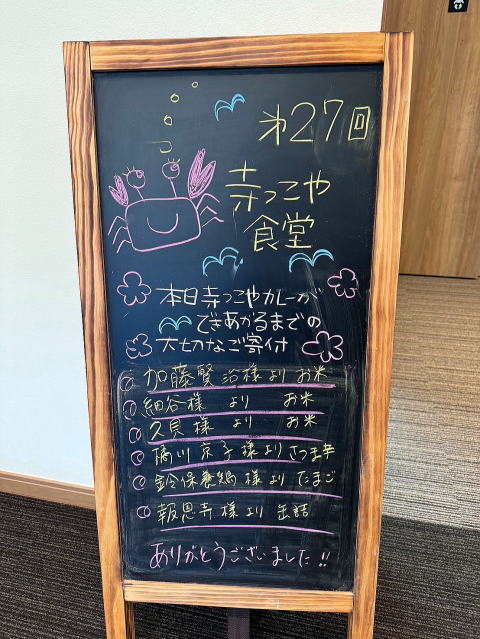 第27回
寺っこや
食堂
本日寺っこやカレーが
できあがるまでの
大切なご寄付
加藤賢治様より お米
細谷様 より お米
久貝様 より お米
橘川京子様よりさつま芋
鈴保養鶏様より たまご
報恩寺様より 缶詰
ありがとうございました!!